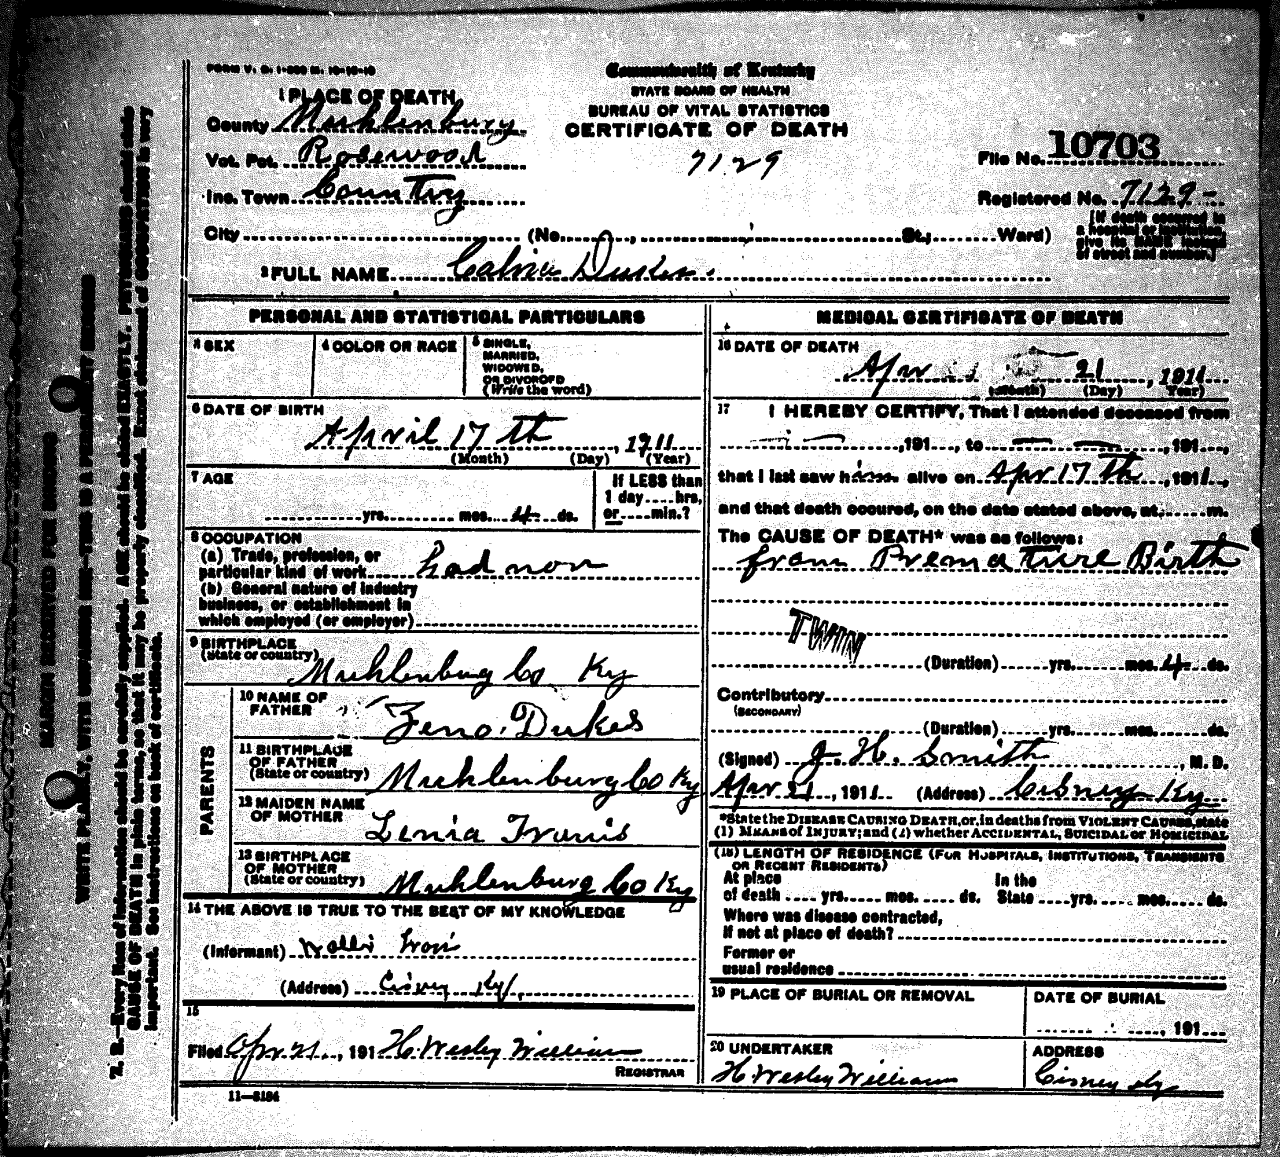 FORM V. S. 1-
Commonwealth of Kentucky
STATE BOARD OF HEALTH
BUREAU OF VITAL STATISTICS
CERTIFICATE OF DEATH
1 PLACE OF DEATH
County Muhlenburg
Vot. Pct. Rosewood
Inc. Town Country
7129
File No. 10703
Registered No. 7129-
[If death occurred in a hospital or institution, give its NAME instead of street and number.]
City (No. , St.; Ward)
2 FULL NAME Calvin Dukes.
PERSONAL AND STATISTICAL PARTICULARS
3 SEX
4 COLOR OR RACE
5 SINGLE, MARRIED, WIDOWED, OR DIVORCED (Write the word)
6 DATE OF BIRTH
April 17 th, 1911
(Month) (Day) (Year)
7 AGE
yrs. mos. 4 ds.
If LESS than 1 day....hrs, or....min.?
8 OCCUPATION
(a) Trade, profession, or
particular kind of work had non
(b) General nature of industry
business, or establishment in
which employed (or employer)
9 BIRTHPLACE
(State or country) Muhlenburg Co Ky
PARENTS
10 NAME OF FATHER Zeno. Dukes
11 BIRTHPLACE OF FATHER (State or country) Muhlenburg Co Ky
12 MAIDEN NAME OF MOTHER
13 BIRTHPLACE OF MOTHER (State or country) Muhlenburg Co Ky
14 THE ABOVE IS TRUE TO THE BEST OF MY KNOWLEDGE
(Informant)
(Address) Cisney Ky,
15
Filed Apr 21, 191 H. Wesley William
REGISTRAR
11—5184
MEDICAL CERTIFICATE OF DEATH
16 DATE OF DEATH
Apr 21, 1911
(Month) (Day) (Year)
17 I HEREBY CERTIFY, That I attended deceased from
,191 , to ,191 ,
that I last saw him alive on Apr 17 th, 1911,
and that death occured, on the date stated above, at m.
The CAUSE OF DEATH* was as follows:
from Premature Birth
TWIN
(Duration) yrs. mos. 4 ds.
Contributory
(SECONDARY)
(Duration) yrs. mos. ds.
(Signed) J. H. Smith, M. D.
Apr 21, 1911 (Address) Cisney Ky
*State the DISEASE CAUSING DEATH, or, in deaths from VIOLENT CAUSES, state
(1) MEANS of INJURY; and (2) whether ACCIDENTAL, SUICIDAL or HOMICIDAL
(18) LENGTH OF RESIDENCE (FOR HOSPITALS, INSTITUTIONS, TRANSIENTS
OR RECENT RESIDENTS)
At place of death yrs. mos. ds. In the State yrs. mos. ds.
Where was disease contracted,
if not at place of death?
Former or
usual residence
19 PLACE OF BURIAL OR REMOVAL
DATE OF BURIAL
, 191
20 UNDERTAKER
H. Wesley William
ADDRESS
Cisney Ky
MARGIN RESERVED FOR BINDING
WRITE PLAINLY, WITH UNFADING INK—THIS IS A PERMANENT RECORD
N. B.—Every item of information should be carefully supplied. AGE should be stated EXACTLY. PHYSICIANS should state
CAUSE OF DEATH in plain terms, so that it may be properly classified. Exact statement of OCCUPATION is very
important. See instructions on back of certificate.